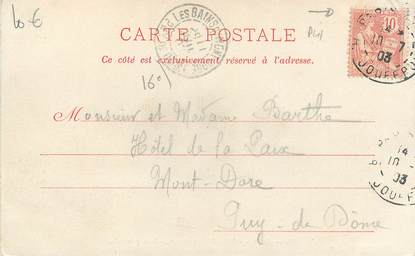 10 €
CARTE POSTALE
Ce côté est exclusivement réservé à l'adresse.
LES BAINS
10
03
JOUFFROY
16°)
Monsieur et Madame Barthe
Hôtel de la Paix
Mont-Dore
Puy-de Dôme
10
03
JOUFFROY